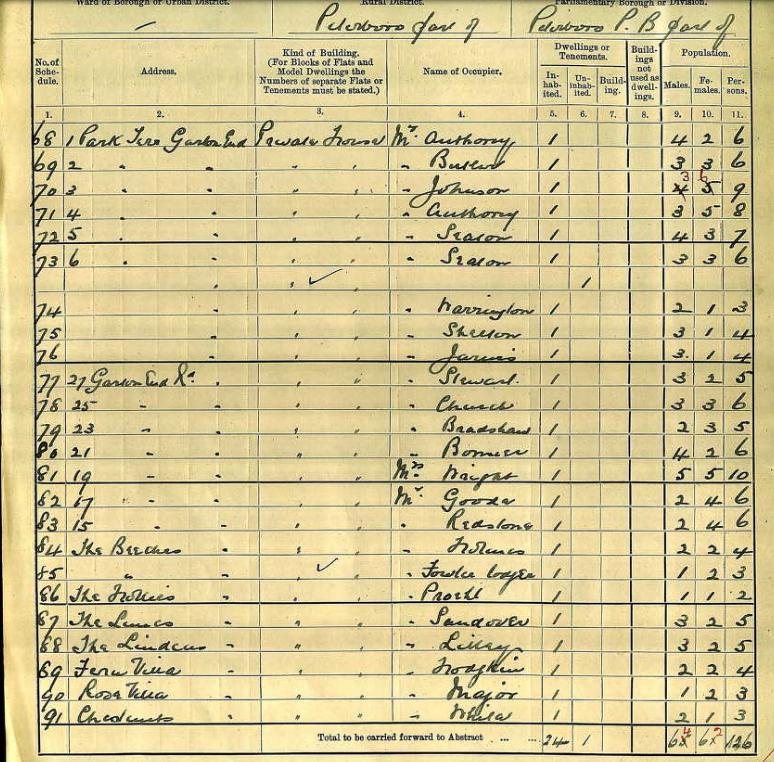 Ward of Borough or Urban District. Rural District. Parliamentary Borough or Division.
Peterboro part of Peterboro P. B part of
No. of Schedule. Address. Kind of Building. (For Blocks of Flats and Model Dwellings the Numbers of separate Flats or Tenements must be stated.) Name of Occupier. Dwellings or Tenements. Inhabited. Uninhabited. Building. Buildings not used as dwellings. Population. Males. Females. Persons.
1. 2. 3. 4. 5. 6. 7. 8. 9. 10. 11.
68 1 Park Terr Garton End Private House Mr. Anthony 1 4 2 6
69 2 " " " " " Butler 1 3 3 6
70 3 " " " " " Johnson 1 4 3 5 6 9
71 4 " " " " " Anthony 1 3 5 8
72 5 " " " " " Seaton 1 4 3 7
73 6 " " " " " Seaton 1 3 3 6
" " ✓ " 1
74 " " " " Warrington 1 2 1 3
75 " " " " Shelton 1 3 1 4
76 " " " " Jarvis 1 3 1 4
77 27 Garton End Rd " " " " Stewart 1 3 2 5
78 25 " " " " " Church 1 3 3 6
79 23 " " " " " Bradshaw 1 2 3 5
80 21 " " " " " 1 4 2 6
81 19 " " " " Mrs Wright 1 5 5 10
82 17 " " " " Mr. Goode 1 2 4 6
83 15 " " " " " Redstone 1 2 4 6
84 The Beeches " " " " Holmes 1 2 2 4
85 " " ✓ " " Fowler lodger 1 1 2 3
86 The Hollies " " " " 1 1 1 2
87 The Limes " " " " Sandover 1 3 2 5
88 The Lindens " " " " Lilley 1 3 2 5
89 Fern Villa " " " " Hodgkin 1 2 2 4
90 Rose Villa " " " " Major 1 1 2 3
91 Chestnuts " " " " 1 2 1 3
Total to be carried forward to Abstract ... ... 24 1 64 62 126